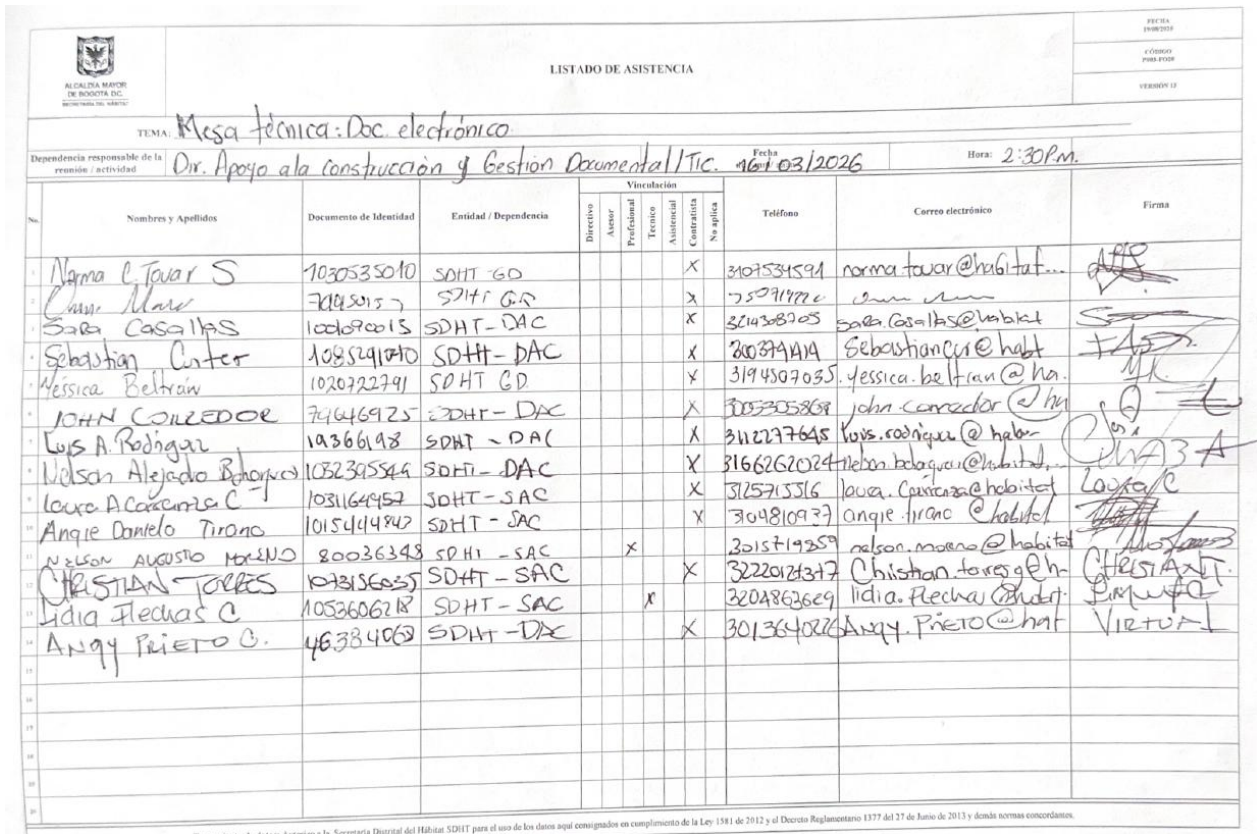 ALCALDÍA MAYOR
DE BOGOTÁ D.C.
LISTADO DE ASISTENCIA
FECHA
CÓDIGO
VERSIÓN 12
TEMA: Mesa técnica: Doc. electrónico
Dependencia responsable de la reunión / actividad Dir. Apoyo a la Construcción y Gestión Documental / TIC. Fecha 16/03/2026 Hora: 2:30 P.m.
No. Nombres y Apellidos Documento de Identidad Entidad / Dependencia Vinculación Directivo Asesor Profesional Tecnico Asistencial Contratista No aplica Teléfono Correo electrónico Firma
1 Norma C. Tovar S 1030535010 SDHT GD X 3107534591 norma.tovar@habitat...
2 SDHT GD X
3 Sara Casallas SDHT-DAC X 3214308705 sara.casallas@habitat
4 Sebastian SDHT-DAC X
5 Yessica Beltrán 1020722791 SDHT GD X 3194507035 yessica.beltran@ha.
6 JOHN CORREDOR 79646925 SDHT-DAC X john.corredor@hu
7 Luis A. Rodriguez 19366198 SDHT-DAC X 3112277645 luis.rodriguez@habi-
8 Nelson Alejandro 1032395549 SDHT-DAC X 3166262024
9 Laura A Carranza C 1031164957 SDHT-SAC X 3125715516 laura.carranza@habitat Laura C
10 Angie Daniela Tirano 1015444847 SDHT-SAC X 3104810937 angie.tirano@habitat
11 NELSON AUGUSTO MORENO 80036348 SDHT-SAC X 3015719859 nelson.moreno@habitat
12 CHRISTIAN TORRES 1073156035 SDHT-SAC X CHRISTIAN T.
13 Lidia Flechas C 1053606218 SDHT-SAC X 3204863629
14 ANGY PRIETO C. 46384068 SDHT-DAC X 3013640226 ANGY.PRIETO@hat VIRTUAL
15
16
17
18
19
20
Secretaría Distrital del Hábitat SDHT para el uso de los datos aquí consignados en cumplimiento de la Ley 1581 de 2012 y el Decreto Reglamentario 1377 del 27 de Junio de 2013 y demás normas concordantes.